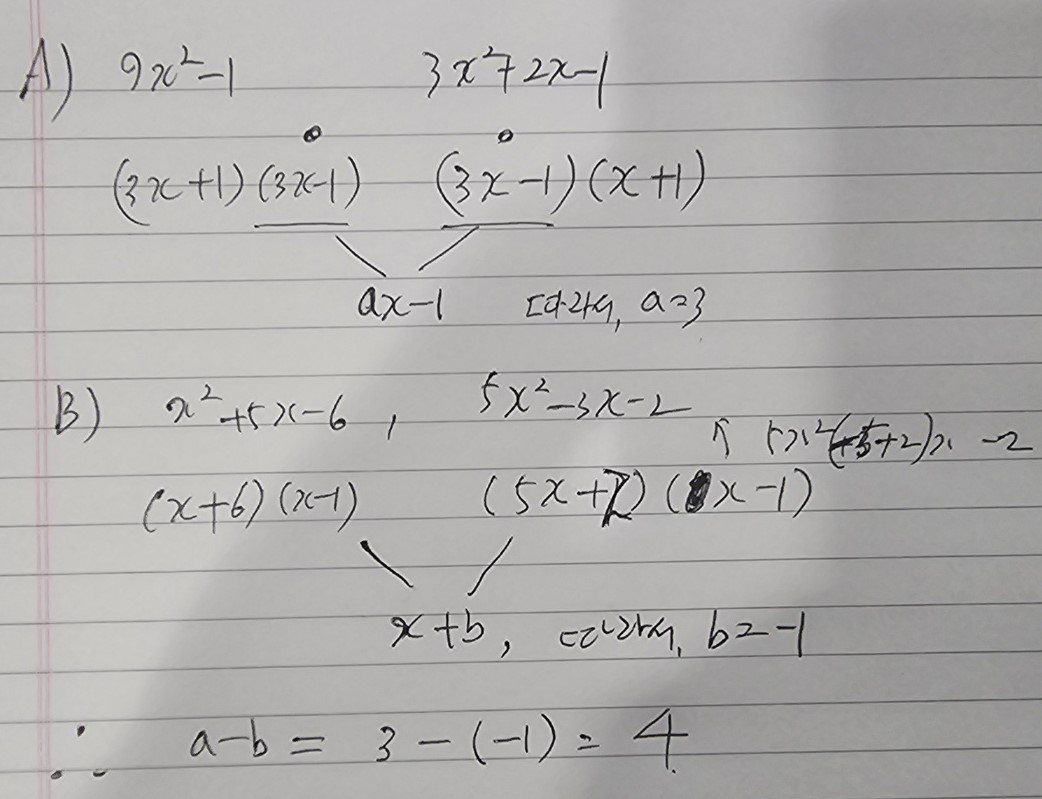 A) 9x²-1 3x²+2x-1
(3x+1)(3x-1) (3x-1)(x+1)
ax-1 따라서, a=3
B) x²+5x-6, 5x²-3x-2
↑ 5x²(-5+2)x -2
(x+6)(x-1) (5x+2)(x-1)
x+b, 따라서, b=-1
∴ a-b = 3-(-1) = 4